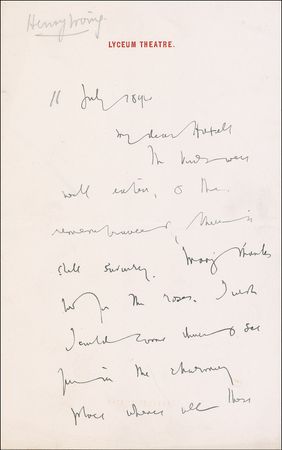 Henry Irving.
LYCEUM THEATRE.
11 July 1892
My dear
The birds were
well eaten, & the
remembrance of them is
still savoury. Many thanks
too for the roses. I wish
I could come down & see
you in the charming
place whence all these